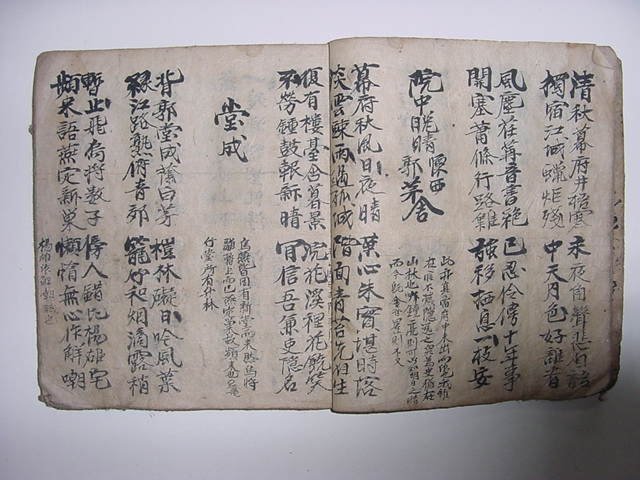 清秋幕府井梧寒 永夜角聲悲自語
獨宿江城蠟炬殘 中天月色好誰看
風塵荏苒音書絶 已忍伶俜十年事
關塞蕭條行路難 強移栖息一枝安
院中晚晴懷西郭茅舍
幕府秋風日夜晴 葉心朱實堪時落
淡雲疎雨過孤城 階面青苔先自生
復有樓臺含暮景 浣花溪裡花饒笑
不勞鐘鼓報新晴 肯信吾兼吏隱名
堂成
烏燕皆因有新堂而來
背郭堂成蔭白茅 榿林礙日吟風葉
緣江路熟俯青郊 籠竹和烟滴露梢
暫止飛烏將數子 傍人錯比楊雄宅
頻來語燕定新巢 懶惰無心作解嘲